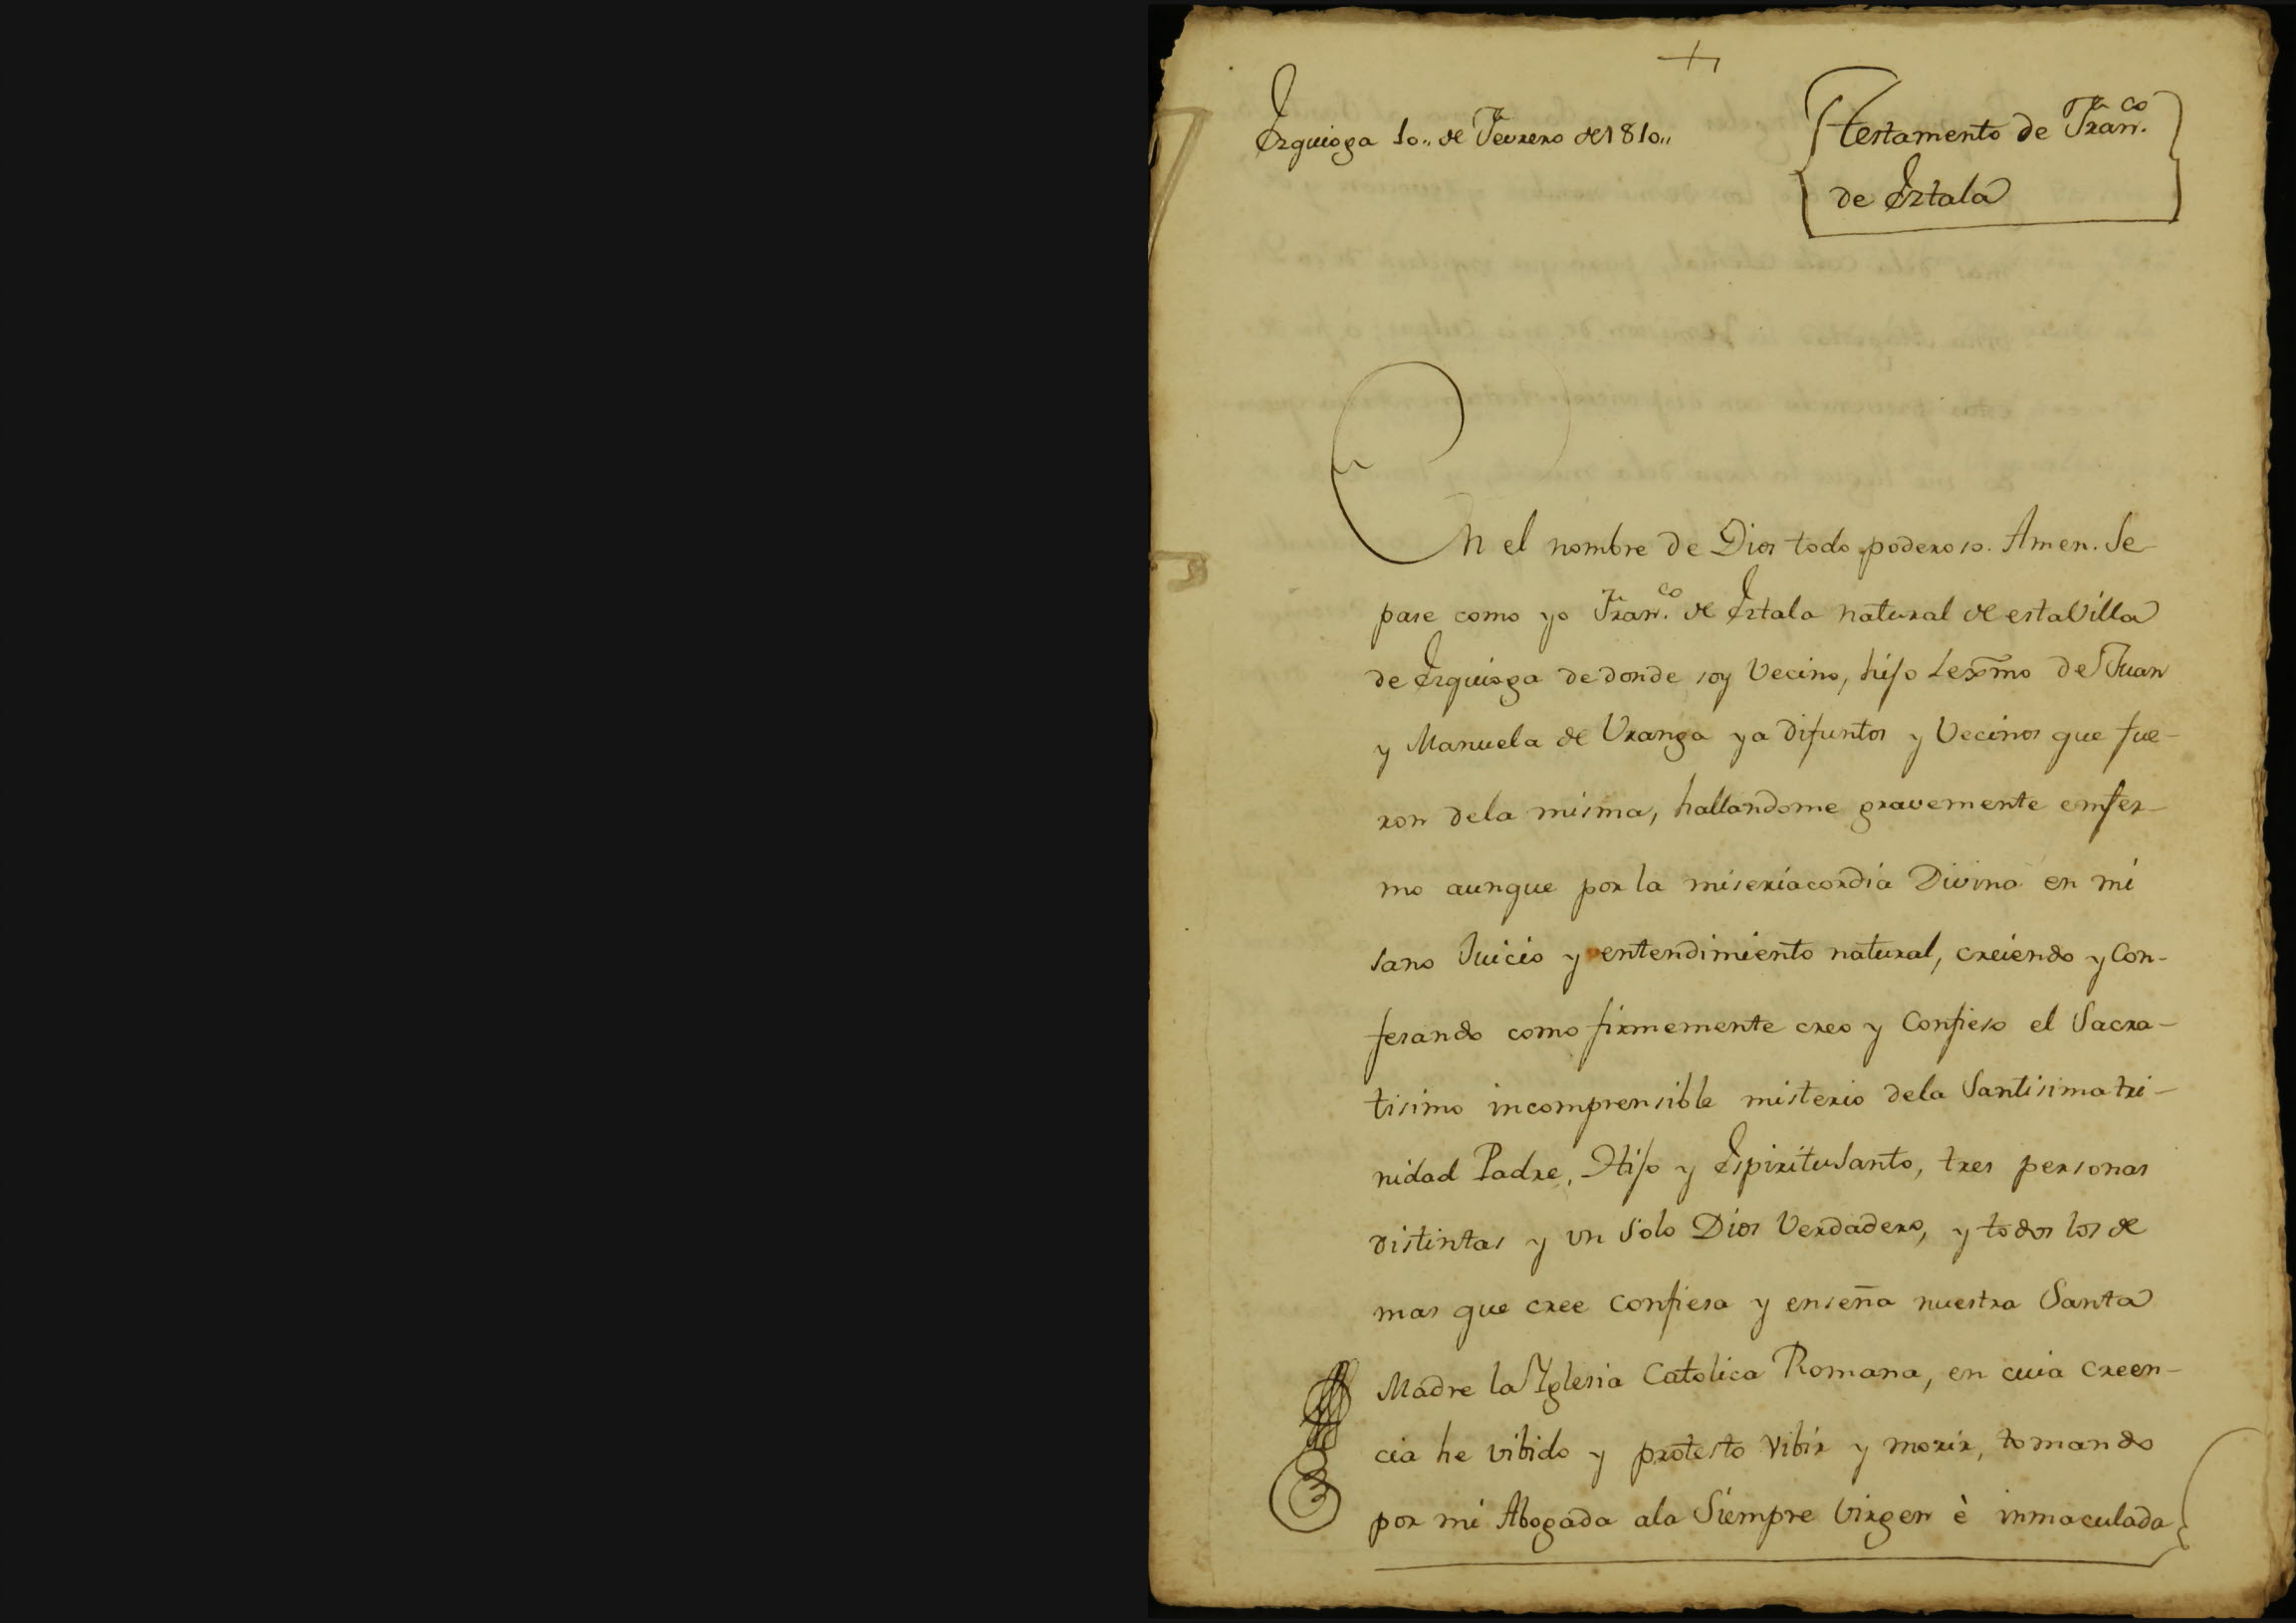 +
Ezquioga 10,, de Fevrero de 1810,,
Testamento de Fran.co
de Eztala
En el nombre de Dios todo poderoso. Amen. Se
pase como yo Fran.co de Eztala natural de esta Villa
de Ezquioga de donde soy Vecino, hijo Lexmo de Juan
y Manuela de Uranga ya difuntos y Vecinos que fue-
ron dela misma, hallandome gravemente emfer-
mo aunque por la miseriacordia Divina en mi
sano Juicio y entendimiento natural, creiendo y Con-
fesando como firmemente creo y Confieso el Sacra-
tisimo incomprensible misterio dela Santisima tri-
nidad Padre, Hijo y Espiritu Santo, tres personas
distintas y un Solo Dios Verdadero, y todos los de
mas que cree confiesa y enseña nuestra Santa
Madre la Yglesia Catolica Romana, en cuia creen-
cia he vibido y protesto vibir y morir, tomando
por mi Abogada ala Siempre Virgen è inmaculada